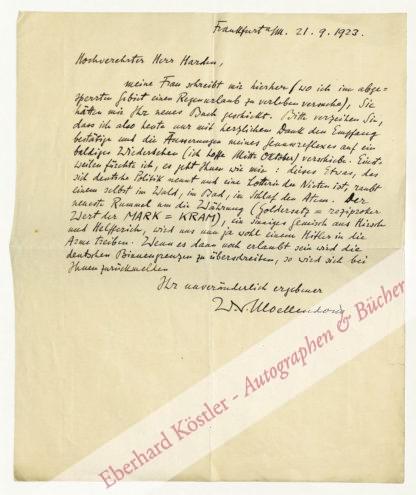 Frankfurt a/M. 21. 9. 1923.
Hochverehrter Herr Harden,
meine Frau schreibt mir hierher (wo ich im abge-
sperrten Gebiet einen Regenurlaub zu verleben versuche), Sie
hätten mir Ihr neues Buch geschickt. Bitte verzeihen Sie,
dass ich also heute nur mit herzlichem Dank den Empfang
bestätige und die Äusserungen meines auf ein
baldiges Wiedersehen (ich hoffe Mitte Oktober) verschiebe. Einst-
weilen fürchte ich, es geht Ihnen wie mir: dieses Etwas, das
sich deutsche Politik nennt und eine Lotterie der Nieten ist, raubt
einem selbst im Wald, im Bad, im Schlaf den Atem. Der
neueste Rummel um die Währung (Goldersatz = reziproker
Wert der MARK = KRAM), ein Gemisch aus Hirsch
und Helfferich, wird uns nun ja wohl einem Hitler in die
Arme treiben. Wenn es dann noch erlaubt sein wird die
deutschen Binnengrenzen zu überschreiten, so wird sich bei
Ihnen zurückmelden
Ihr unveränderlich ergebener
W. v. Moellendorff
Eberhard Köstler - Autographen & Bücher